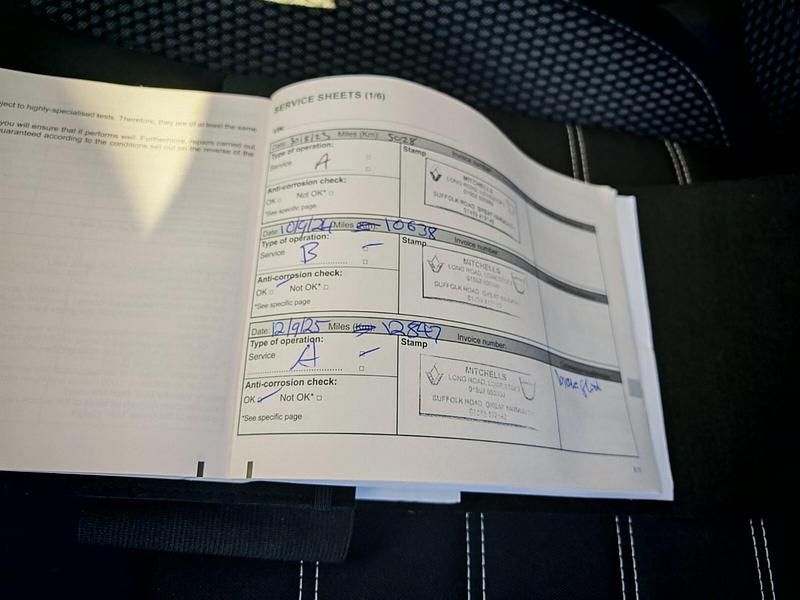 ject to highly-specialised tests. Therefore, they are of at least the same
you will ensure that it performs well. Furthermore, repairs carried out
uaranteed according to the conditions set out on the reverse of the
SERVICE SHEETS (1/6)
VIN:
Date: 30/8/23 Miles (Km) 5028 Invoice number:
Type of operation: Stamp
Service A
MITCHELLS
LONG ROAD, LOWESTOFT
SUFFOLK ROAD, GREAT
Anti-corrosion check:
OK Not OK*
*See specific page
Date: 10/9/24 Miles (Km) 10638 Invoice number:
Type of operation: Stamp
Service B
MITCHELLS
LONG ROAD, LOWESTOFT
SUFFOLK ROAD, GREAT
Anti-corrosion check:
OK Not OK*
*See specific page
Date: 12/9/25 Miles (Km) 12847 Invoice number:
Type of operation: Stamp
Service A
MITCHELLS
LONG ROAD, LOWESTOFT
SUFFOLK ROAD, GREAT
Anti-corrosion check:
OK Not OK*
*See specific page